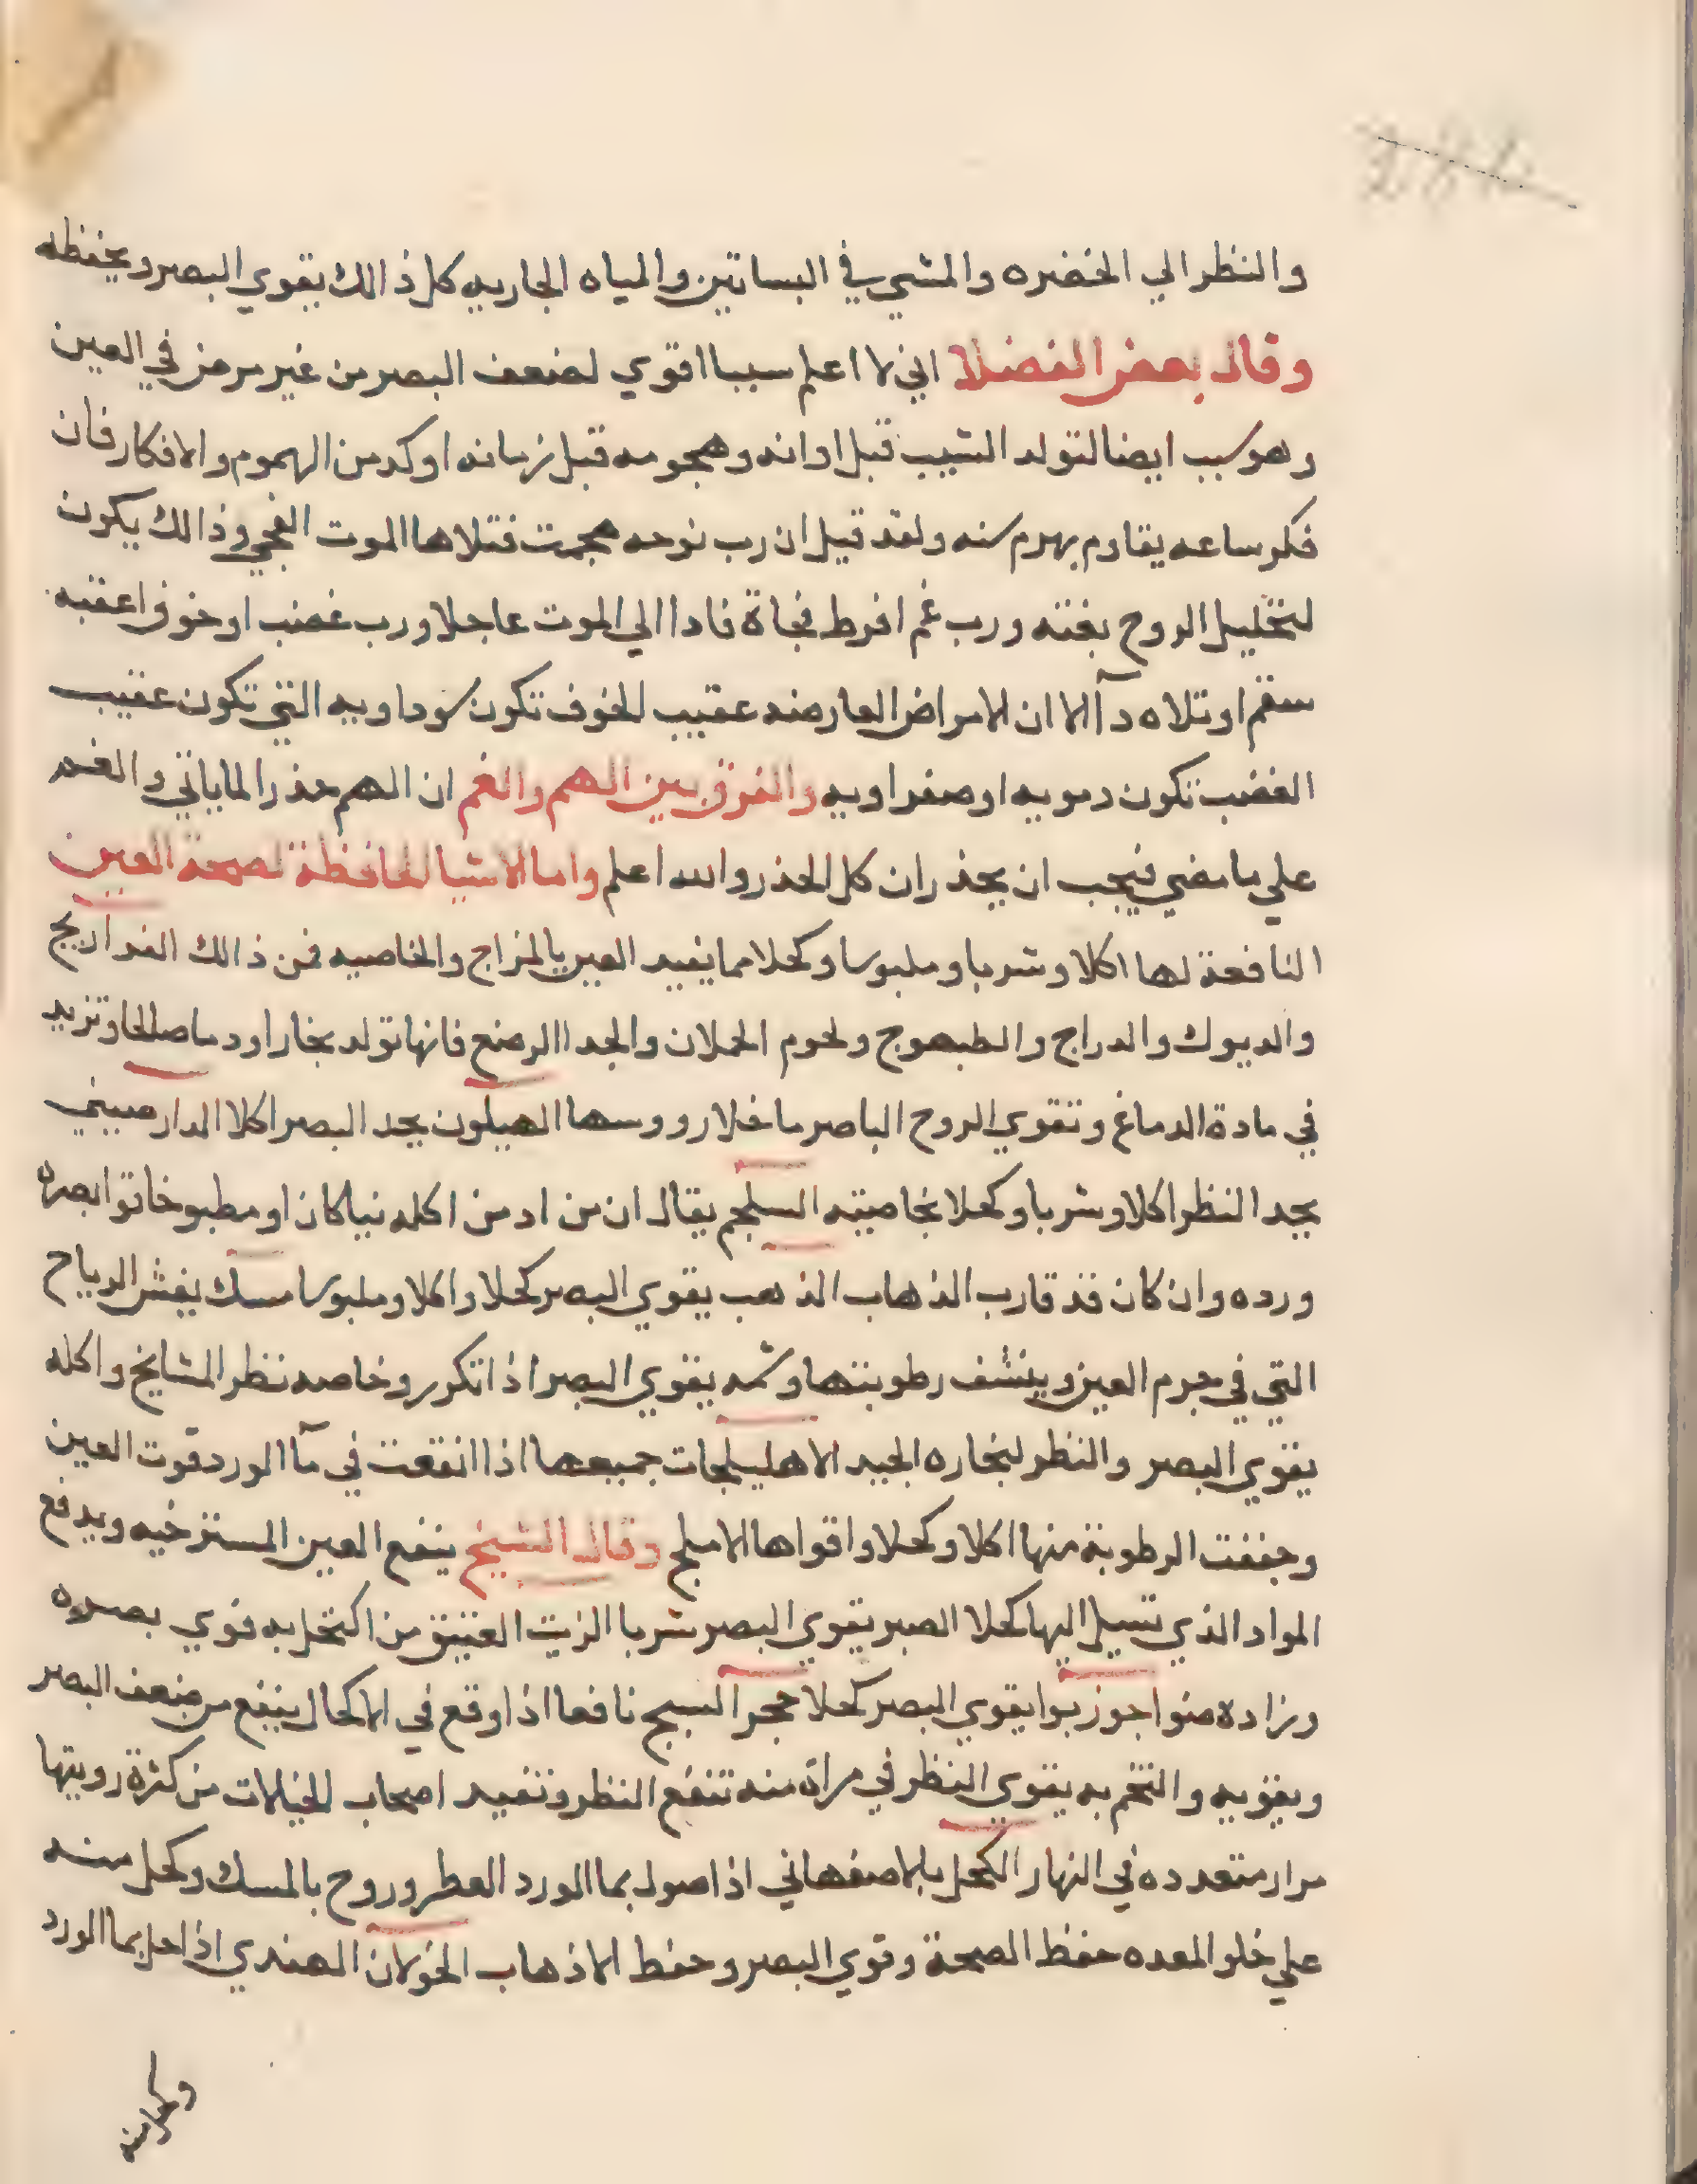 والنظر الي الخضره والمشي في البساتين والمياه الجاريه كل ذالك يقوي البصر ويحفظه
وقال بعض الفضلا اني لا اعلم سببا اقوي لضعف البصر من غير مرض في العين
وهو سبب ايضا لتولد الشيب قبل اوانه وهجومه قبل زمانه اوكد من الهموم والافكار فان
فكر ساعه يقاوم بهرم سنه ولقد قيل ان رب نوحه هجمت فتلاها الموت الفجي وذالك يكون
لتحليل الروح بغته ورب غم افرط فجاة فادا الي الموت عاجلا ورب غضب او خوف اعقبه
سقم او تلاه دآ الا ان الامراض العارضه عقيب الخوف تكون سوداويه التي تكون عقيب
الغضب تكون دمويه او صفراويه والفرق بين الهم والغم ان الهم حذرا لما ياتي والغم
علي ما مضي فيجب ان يحذر ان كل الحذر والله اعلم واما الاشيا الحافظة لصحة العين
النافعة لها اكلا وشربا وملبوسا وكحلا مما يفيد العين بالمزاج والخاصيه فمن ذالك الفراريج
والديوك والدراج والطيهوج ولحوم الحملان والجدا الرضع فانها تولد بخارا ودما صالحا وتزيد
في مادة الدماغ وتقوي الروح الباصر ما خلا رووسها الهيلون يحد البصر اكلا الدارصيني
يحد النظر اكلا وشربا وكحلا بخاصيته السلجم يقال ان من ادمن اكله نيا كان او مطبوخا قوا بصره
ورده وان كان قد قارب الذهاب الذهب يقوي البصر كحلا واكلا وملبوسا مسك يفش الرياح
التي في جرم العين وينشف رطوبتها وشمه يقوي البصر اذا تكرر وخاصه نظر المشايخ واكله
يقوي البصر والنظر لبخاره الجيد الاهليلجات جميعها اذا انقعت في مآ الورد قوت العين
وجففت الرطوبة منها اكلا وكحلا واقواها الاملج وقال الشيخ ينفع العين المسترخيه ويدفع
المواد الذي تسيل اليها كحلا الصبر يقوي البصر شربا الزيت العتيق من اكتحل به قوي بصره
وزاده ضوا جوز بوا يقوي البصر كحلا حجر السبج نافعا اذا وقع في الاكحال ينفع من ضعف البصر
ويقويه والتختم به يقوي النظر في مراة منه تنفع النظر وتفيد اصحاب الخيالات من كثرة رويتها
مرار متعدده في النهار الكحل بالاصفهاني اذا صول بما الورد العطر وروح بالمسك وكحل منه
علي خلو المعده حفظ الصحة وقوي البصر وحفظ الاذهاب الخولان الهندي اذا حل بما الورد